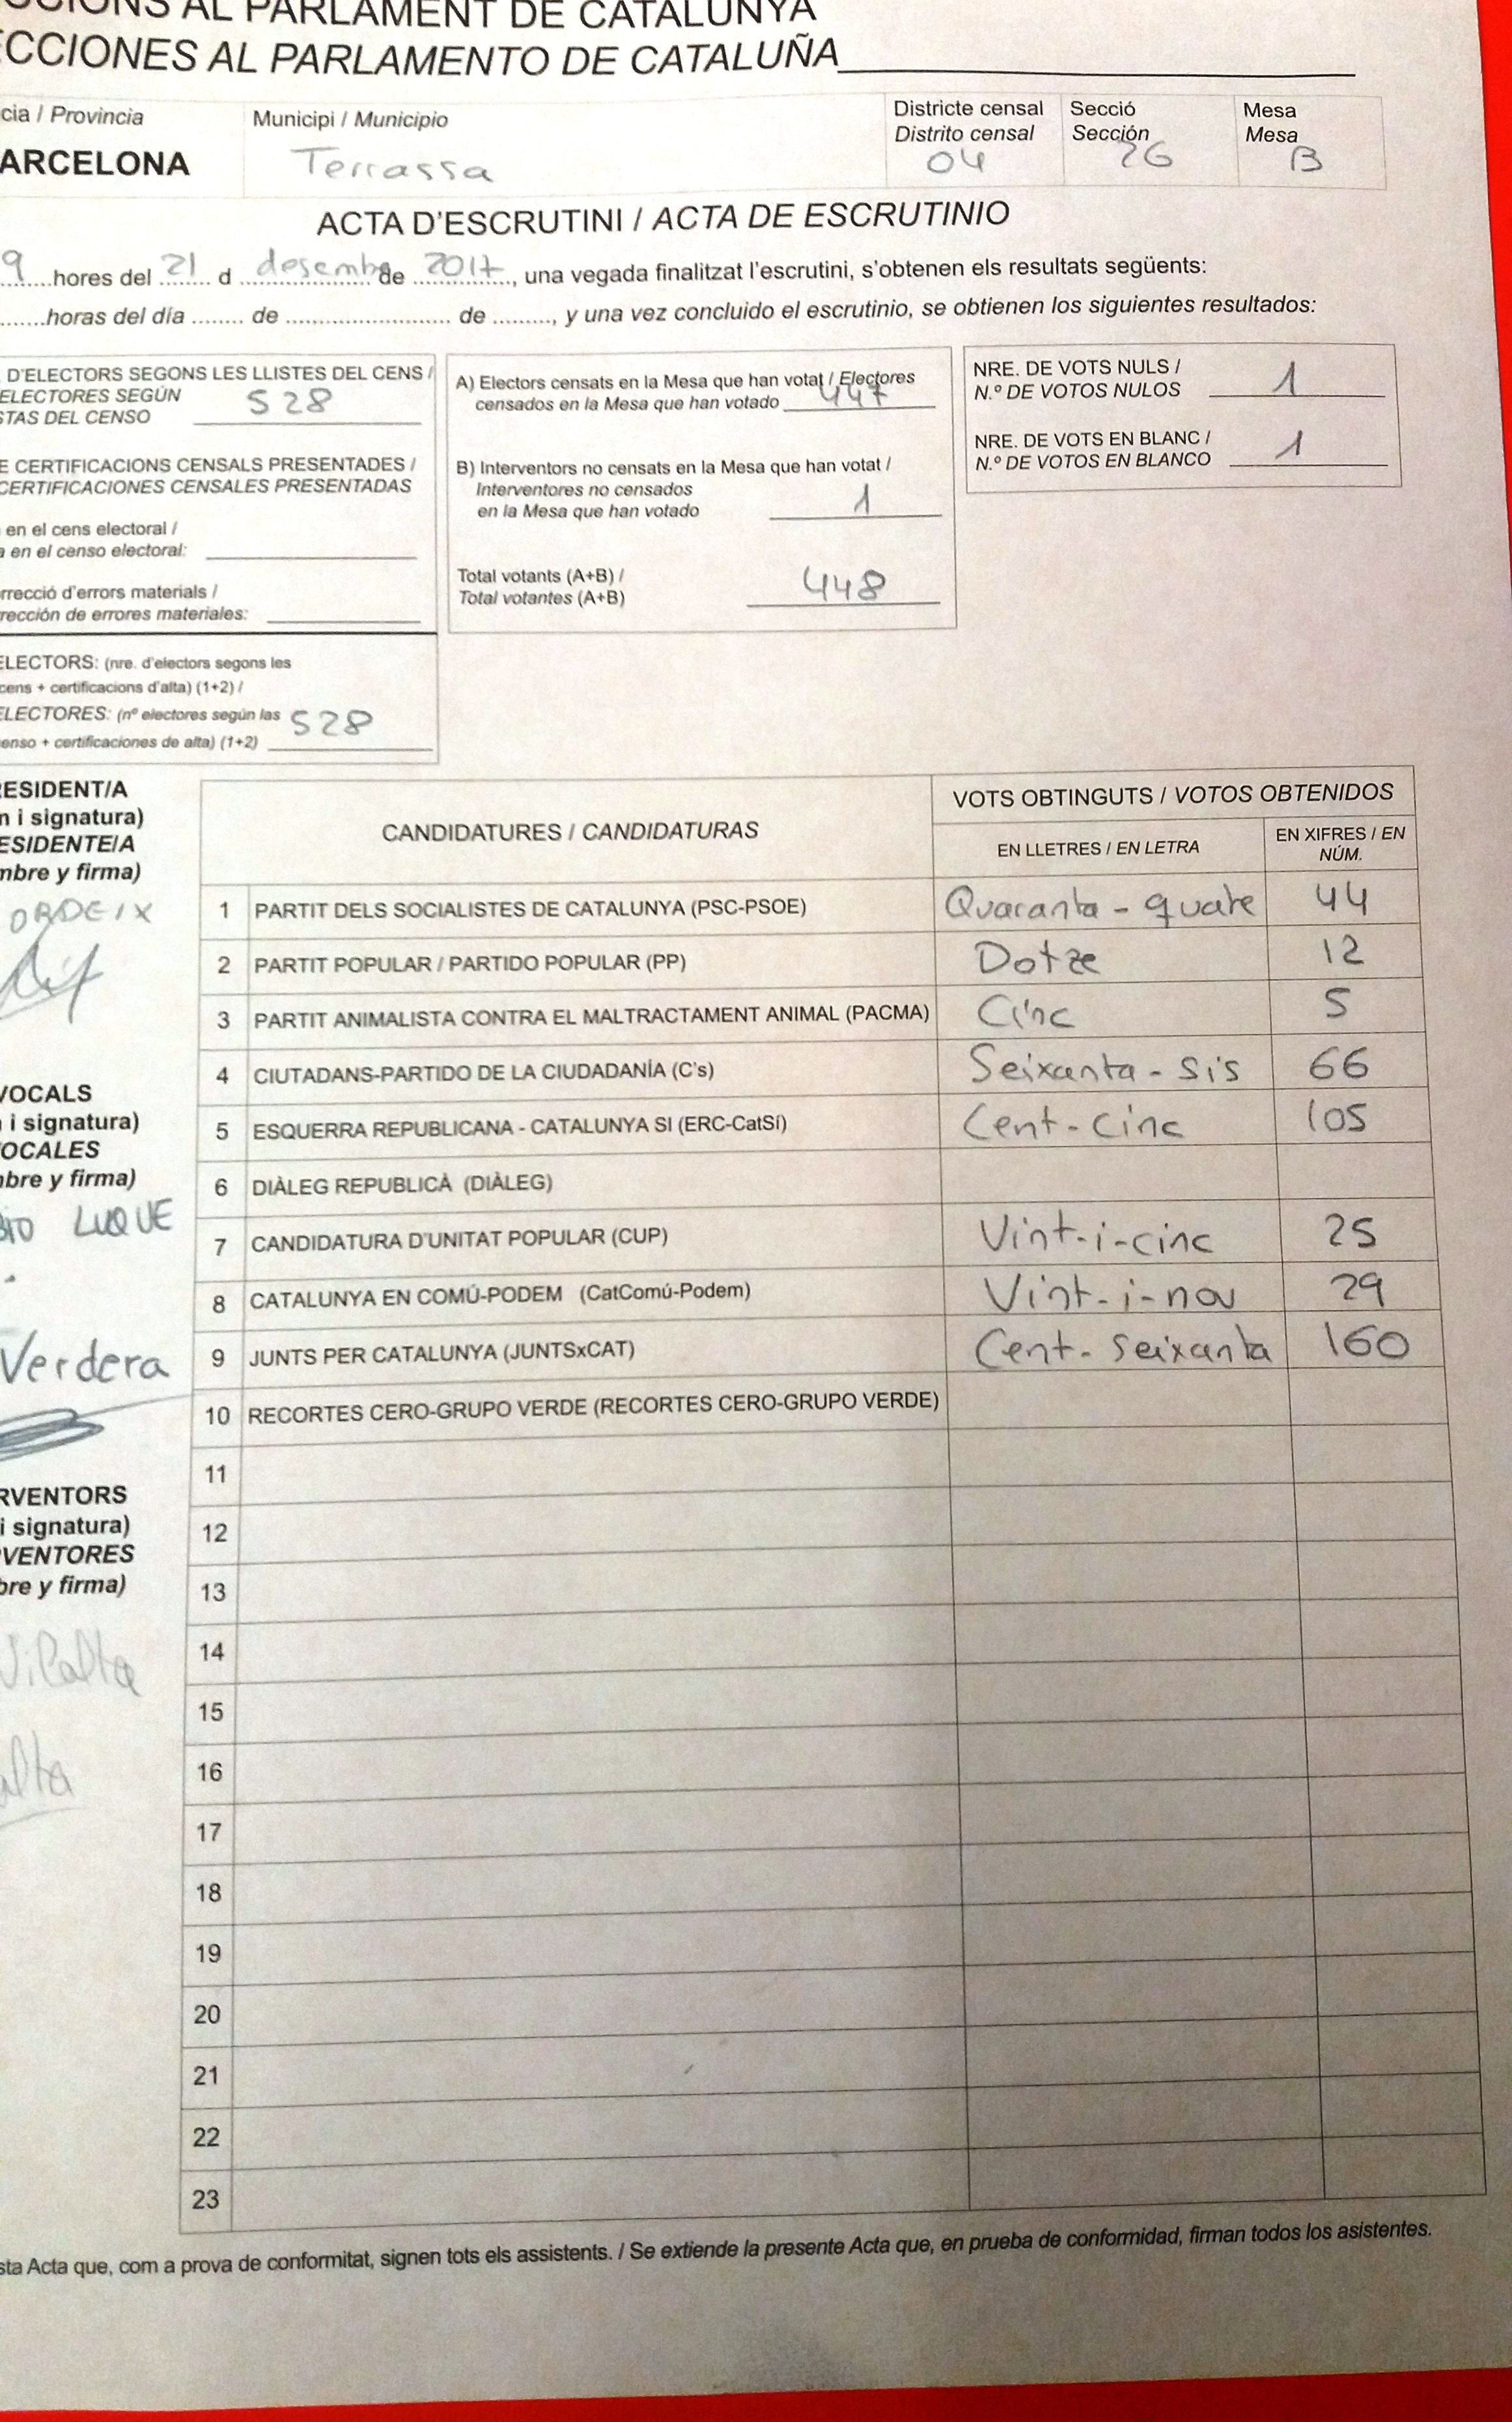 CCIONS AL PARLAMENT DE CATALUNYA
CCIONES AL PARLAMENTO DE CATALUÑA
cia / Provincia
ARCELONA
Municipi / Municipio
Terrassa
Districte censal
Distrito censal
04
Secció
Sección
26
Mesa
Mesa
B
ACTA D'ESCRUTINI / ACTA DE ESCRUTINIO
9 hores del 21 d desembre de 2017, una vegada finalitzat l'escrutini, s'obtenen els resultats següents:
horas del día de de , y una vez concluido el escrutinio, se obtienen los siguientes resultados:
D'ELECTORS SEGONS LES LLISTES DEL CENS /
ELECTORES SEGÚN
STAS DEL CENSO 528
E CERTIFICACIONS CENSALS PRESENTADES /
CERTIFICACIONES CENSALES PRESENTADAS
en el cens electoral /
a en el censo electoral:
rrecció d'errors materials /
rección de errores materiales:
ELECTORS: (nre. d'electors segons les
cens + certificacions d'alta) (1+2) /
ELECTORES: (nº electores según las
enso + certificaciones de alta) (1+2) 528
A) Electors censats en la Mesa que han votat / Electores
censados en la Mesa que han votado 447
B) Interventors no censats en la Mesa que han votat /
Interventores no censados
en la Mesa que han votado 1
Total votants (A+B) /
Total votantes (A+B) 448
NRE. DE VOTS NULS /
N.º DE VOTOS NULOS 1
NRE. DE VOTS EN BLANC /
N.º DE VOTOS EN BLANCO 1
CANDIDATURES / CANDIDATURAS
VOTS OBTINGUTS / VOTOS OBTENIDOS
EN LLETRES / EN LETRA
EN XIFRES / EN NÚM.
1 PARTIT DELS SOCIALISTES DE CATALUNYA (PSC-PSOE) Quaranta-quatre 44
2 PARTIT POPULAR / PARTIDO POPULAR (PP) Dotze 12
3 PARTIT ANIMALISTA CONTRA EL MALTRACTAMENT ANIMAL (PACMA) Cinc 5
4 CIUTADANS-PARTIDO DE LA CIUDADANÍA (C's) Seixanta-sis 66
5 ESQUERRA REPUBLICANA - CATALUNYA SI (ERC-CatSí) Cent-cinc 105
6 DIÀLEG REPUBLICÀ (DIÀLEG)
7 CANDIDATURA D'UNITAT POPULAR (CUP) Vint-i-cinc 25
8 CATALUNYA EN COMÚ-PODEM (CatComú-Podem) Vint-i-nou 29
9 JUNTS PER CATALUNYA (JUNTSxCAT) Cent-seixanta 160
10 RECORTES CERO-GRUPO VERDE (RECORTES CERO-GRUPO VERDE)
11
12
13
14
15
16
17
18
19
20
21
22
23
RESIDENT/A
n i signatura)
ESIDENTE/A
mbre y firma)
VOCALS
n i signatura)
OCALES
mbre y firma)
LUQUE
Verdera
RVENTORS
i signatura)
VENTORES
bre y firma)
Vilalta
sta Acta que, com a prova de conformitat, signen tots els assistents. / Se extiende la presente Acta que, en prueba de conformidad, firman todos los asistentes.